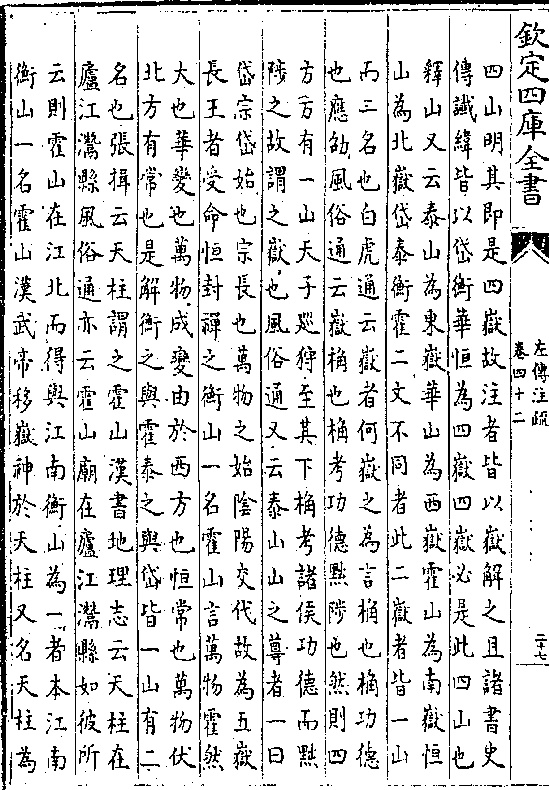 欽定四庫全書
左傳注疏
卷四十二
二十七
四山明其即是四嶽故注者皆以嶽解之且諸書史
傳讖緯皆以岱衡華恒為四嶽四嶽必是此四山也
釋山又云泰山為東嶽華山為西嶽霍山為南嶽恒
山為北嶽岱泰衡霍二文不同者此二嶽者皆一山
而二名也白虎通云嶽者何嶽之為言桷也桷功德
也應劭風俗通云嶽桷也桷考功德黜陟也然則四
方方有一山天子廵狩至其下桷考諸侯功德而黜
陟之故謂之嶽也風俗通又云泰山山之尊者一曰
岱宗岱始也宗長也萬物之始陰陽交代故為五嶽
長王者受命恒封禪之衡山一名霍山言萬物霍然
大也華變也萬物成變由於西方也恒常也萬物伏
北方有常也是解衡之與霍泰之與岱皆一山有二
名也張揖云天柱謂之霍山漢書地理志云天柱在
廬江灊縣風俗通亦云霍山廟在廬江灊縣如彼所
云則霍山在江北而得與江南衡山為一者本江南
衡山一名霍山漢武帝移嶽神於天柱又名天柱為